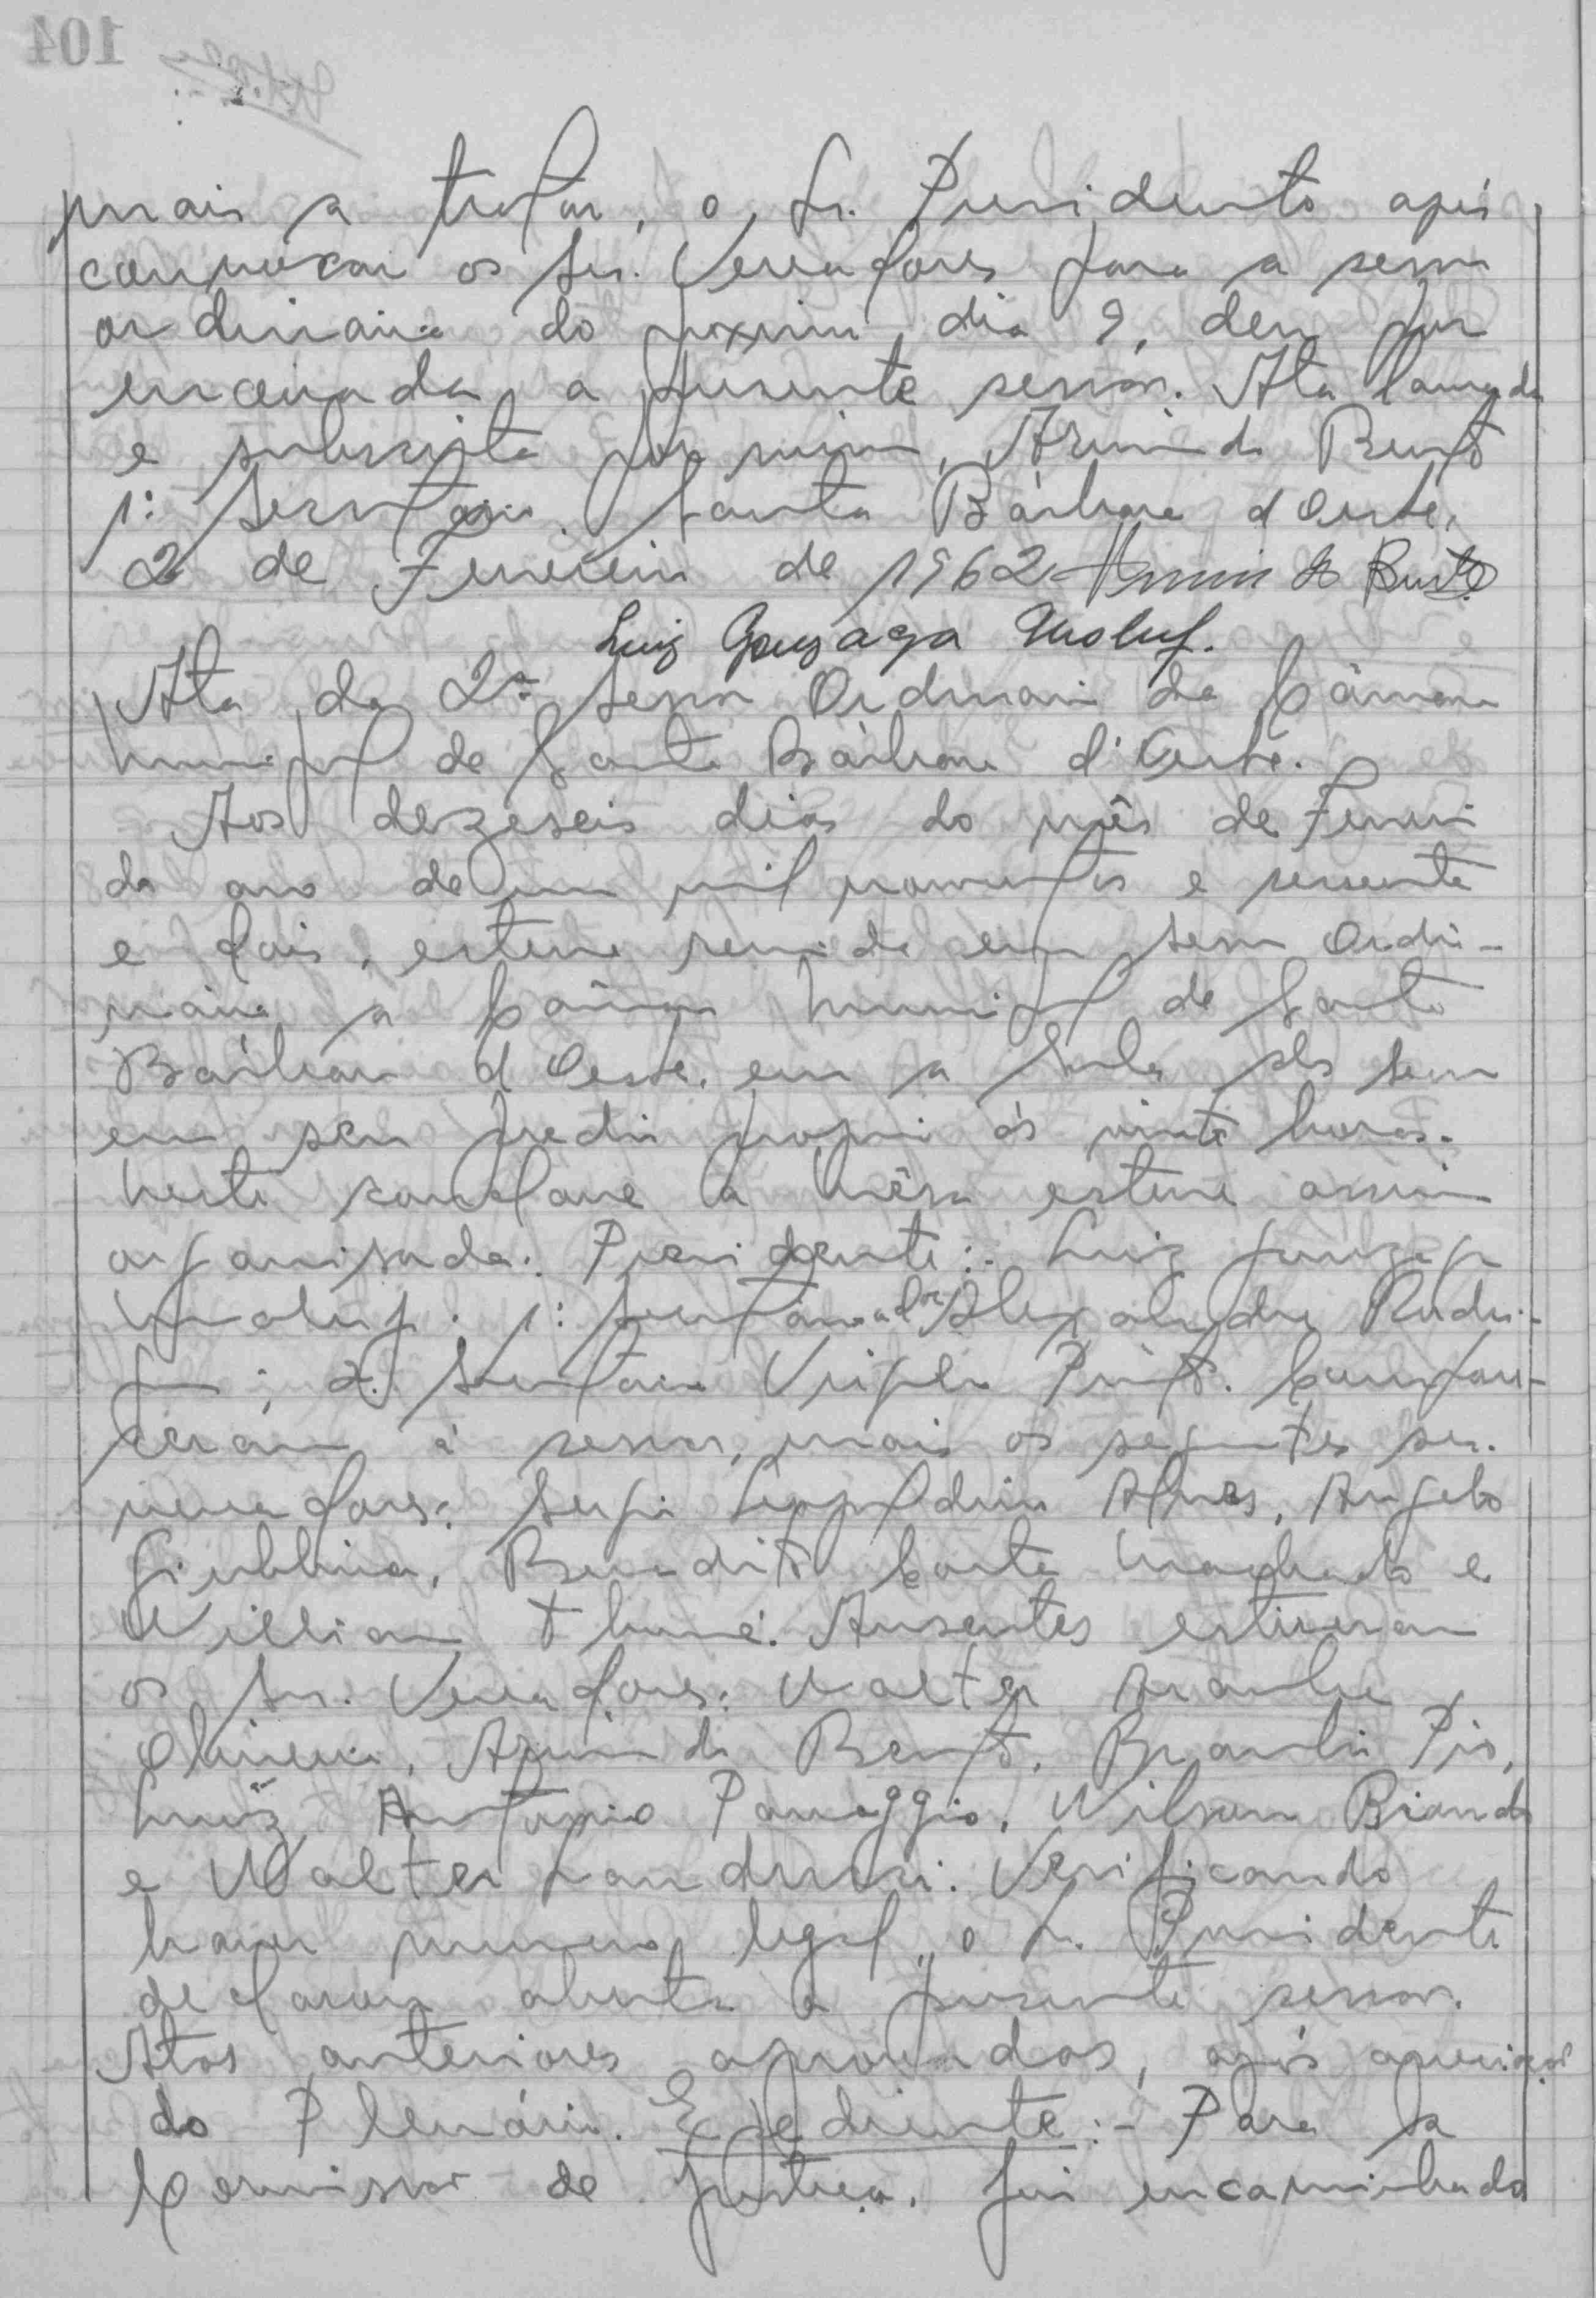 mais a tratar, o Sr. Presidente após
convocar os Srs. Vereadores para a sessão
ordinaria do proximo dia 9, deu por
encerrada a presente sessão. Ata lavrada
e subscrita por mim, Armindo Bento
1º Secretario. Santa Bárbara d'Oeste,
2 de Fevereiro de 1962 Armindo Bento
Luiz Gonzaga Maluf.
Ata da 2ª Sessão Ordinaria da Câmara
Municipal de Santa Bárbara d'Oeste.
Aos dezeseis dias do mês de Fevereiro
do ano de um mil novecentos e sessenta
e dois, esteve reunida em sessão Ordi-
nária a Câmara Municipal de Santa
Bárbara d'Oeste, em a Sala das Sessões
em seu predio proprio ás vinte horas.
Neste conclave a Mêsa esteve assim
organisada: Presidente:- Luiz Gonzaga
Maluf. 1º Secretário Alexandre
; 2º Secretario Virgilio Pinto. Compare-
ceram á sessão, mais os seguintes srs.
vereadores: Sergio Leopoldino Alves, Angelo
Giubbina, Benedito Costa Machado e
Willian Thomé. Ausentes estiveram
os Srs. Vereadores: Walter
Oliveira, Armindo Bento, Braulio Pio,
Luiz Antonio Panaggio, Wilson
e Walter Landucci. Verificando
haver numero legal, o Sr. Presidente
declarou aberta a presente sessão.
Atas anteriores aprovadas, após apreciação
do Plenário. Expediente:- Para a
Comissão de Justiça, foi encaminhado